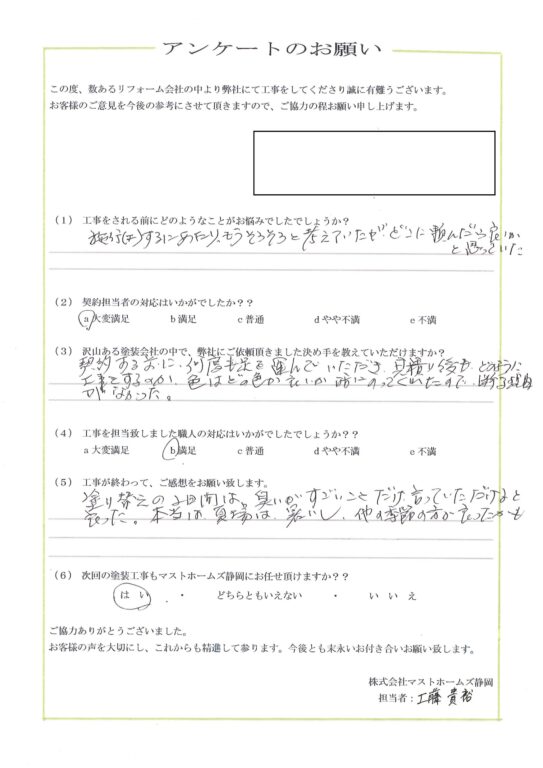 アンケートのお願い
この度、数あるリフォーム会社の中より弊社にて工事をしてくださり誠に有難うございます。
お客様のご意見を今後の参考にさせて頂きますので、ご協力の程お願い申し上げます。
(1) 工事をされる前にどのようなことがお悩みでしたでしょうか?
するにあたり、もうそろそろと考えていたが、どこに頼んだら良いか
と思っていた
(2) 契約担当者の対応はいかがでしたか??
a 大変満足 b 満足 c 普通 d やや不満 e 不満
(3) 沢山ある塗装会社の中で、弊社にご依頼頂きました決め手を教えていただけますか?
契約する前に、何度も足を運んでいただき、見積り後も、どのように
工事をするのか、色はどの色が良いか 相談にのってくれたので、断る理由
がなかった。
(4) 工事を担当致しました職人の対応はいかがでしたでしょうか?
a 大変満足 b 満足 c 普通 d やや不満 e 不満
(5) 工事が終わって、ご感想をお願い致します。
塗り替えの2日間は、臭いがすごいことだけ言っていただけると
良かった。本当は、夏場は、暑いし、他の季節の方が良かったかも
(6) 次回の塗装工事もマストホームズ静岡にお任せ頂けますか??
はい ・ どちらともいえない ・ いいえ
ご協力ありがとうございました。
お客様の声を大切にし、これからも精進して参ります。今後とも末永いお付き合いお願い致します。
株式会社マストホームズ静岡
担当者:工藤 貴裕